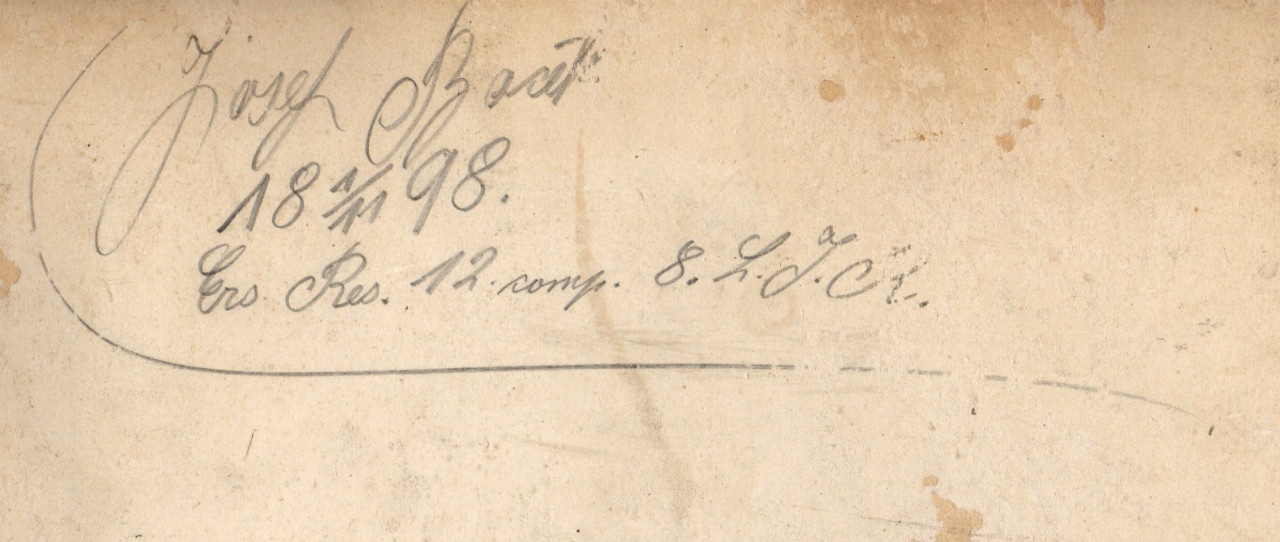 Josef
18 1/11 98.
Ers. Res. 12. comp. 8. L. I. R.